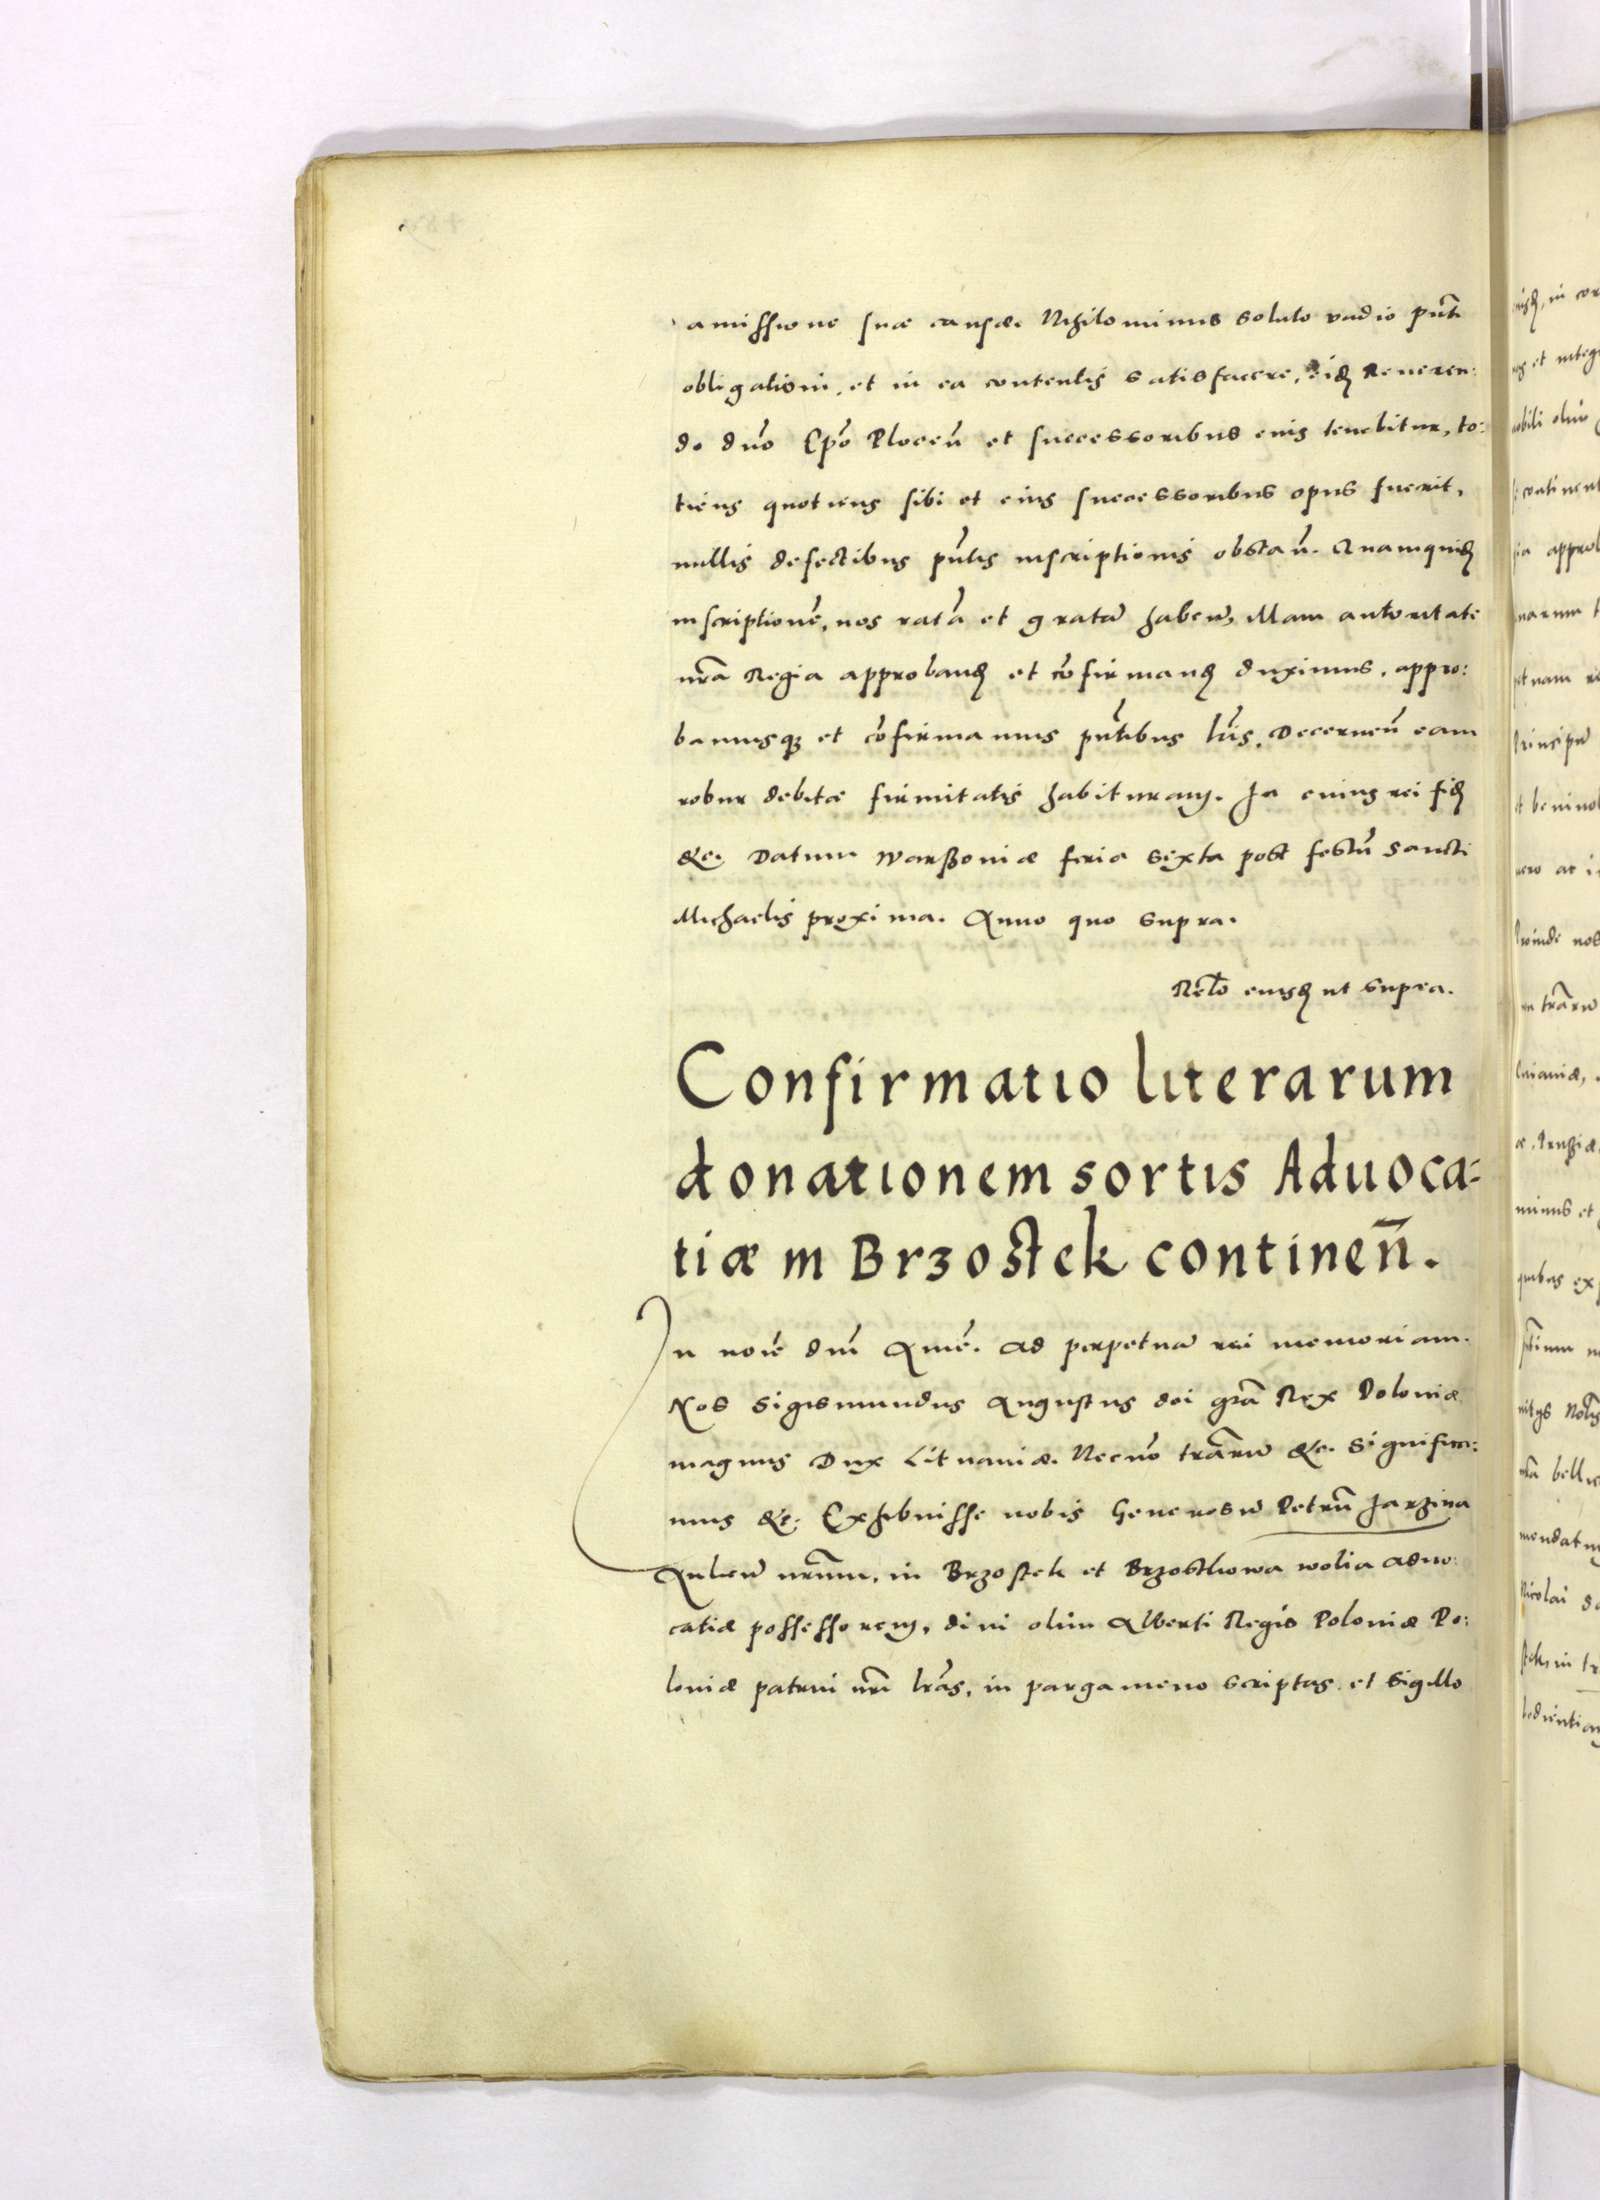 amissione suæ causæ. Nihilominus soluto vadio pñti
obligationi, et in ea contentis satisfacere, eiđ Reueren:
do dño Epõ Plocen̄ et successoribus eius tenebitur, to:
tiens quotiens sibi et eius successoribus opus fuerit,
nullis defectibus pñtis inscriptionis obstañ. Quamquiđ
inscriptionẽ, nos ratã et gratã habeñ, illam autoritate
nrã Regia approbanđ et cõfirmanđ duximus, appro:
bamusq3 et cõfirmamus pñtibus lris, Decerneñ eam
robur debitæ firmitatis habituram. In cuius rei fiđ
&c. Datum Warssouiæ feria sexta post festũ Sancti
Michaelis proxima. Anno quo supra.
Relõ eiusđ ut supra.
Confirmatio literarum
donationem sortis Aduoca=
tiæ in Brzostek continen̄.
In noĩe dñi Amẽ. Ad perpetuã rei memoriam.
Nos Sigismundus Augustus dei grã Rex Poloniæ
magnus Dux Lituaniæ. Necnõ trãrũ &c. Significa:
mus &c. Exhibuisse nobis Generosũ Petrũ Jarzina
Aulicũ nrũm, in Brzostek et Brzosthowa wolia aduo:
catiæ possessorem, diui olim Alberti Regis Poloniæ Po:
loniæ patrui nrĩ lrãs, in pargameno scriptas, et Sigillo